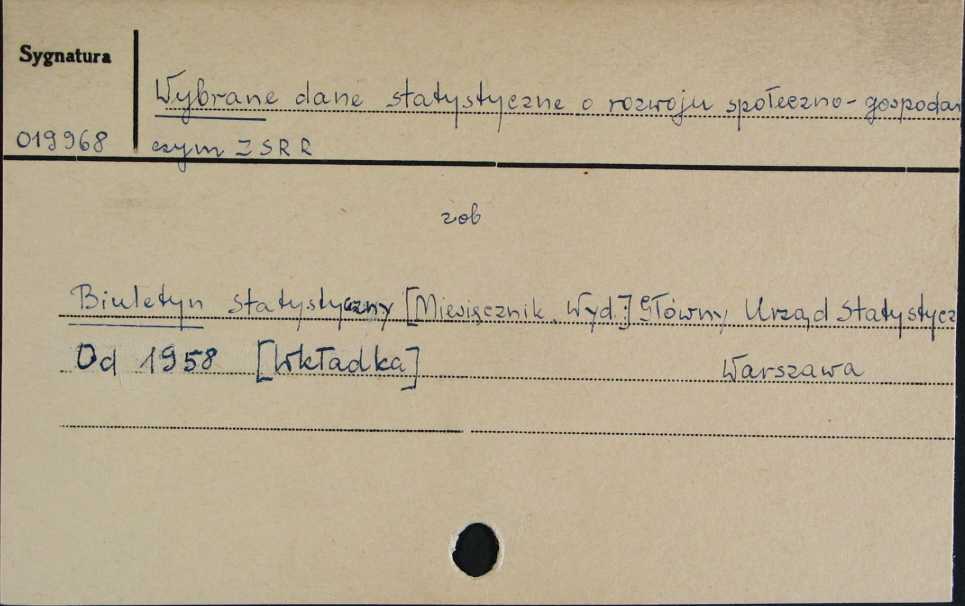 Sygnatura
Wybrane dane statystyczne o rozwoju społeczno-gospodar
019968 czym ZSRR
zob
Biuletyn statystyczny [Miesięcznik. Wyd.] Główny Urząd Statystycz
Od 1958 [Wkładka] Warszawa